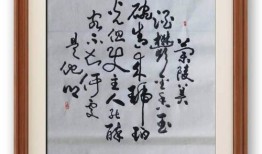 蘭陵美
酒鬱金香玉
碗盛来琥珀
光但使主人能醉
客不知何处
是他鄉